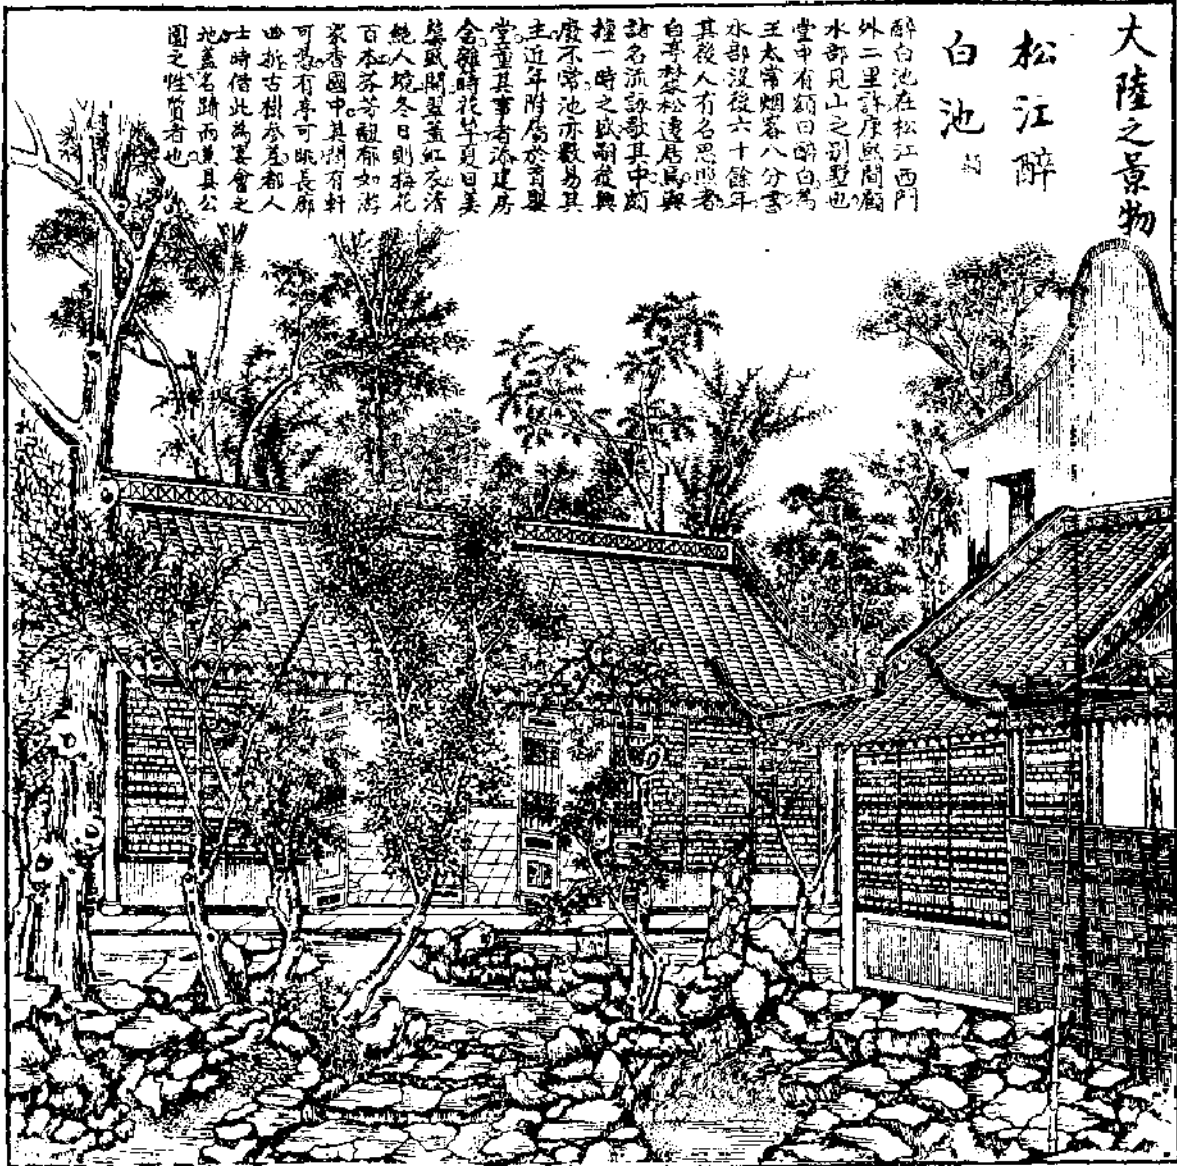 大陸之景物
松江醉
白池
醉白池在松江西門
外二里許康熙間顧
水部見山之別墅也
堂中有額曰醉白為
王太常烟客八分書
水部沒後六十餘年
其後人有名思照者
自亭林松遷居焉與
諸名流詠歌其中頗
擅一時之盛嗣後興
廢不常池亦數易其
主近年附屬於育嬰
堂董其事者添建房
舍雜時花竿夏日
鷗開翠蓋紅衣清
絕人境冬日則梅花
百本芬芳馥郁如游
眾香國中其間有軒
可憑有亭可眺長廊
曲折古樹參差都人
士時借此為宴會之
地蓋名蹟而兼具公
園之性質者也